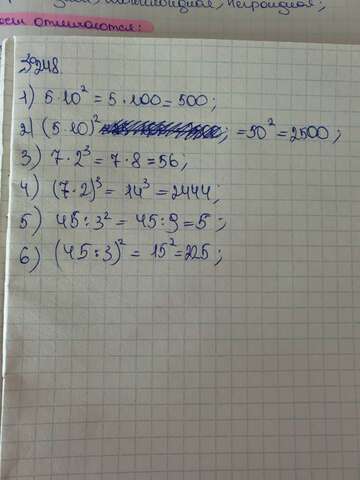 осы отличаются:
3248.
1) 5·10² = 5·100 = 500;
2) (5·10)² ; = 50² = 2500;
3) 7·2³ = 7·8 = 56;
4) (7·2)³ = 14³ = 2444;
5) 45:3² = 45:9 = 5;
6) (45:3)² = 15² = 225;